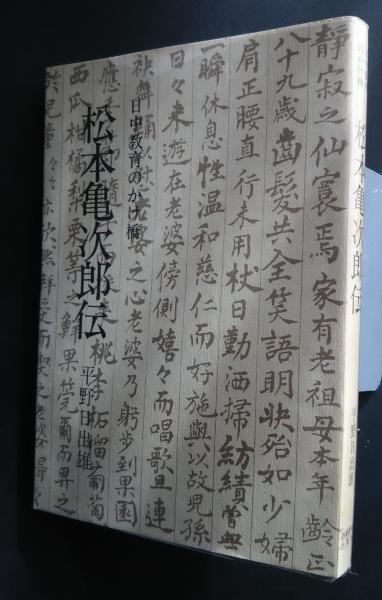 日中教育のかけ橋
松本亀次郎伝
平野日出雄
靜寂之仙寰焉家有老祖母本年齡正
八十九歳齒髮共全笑語明快殆如少婦
肩正腰直行未用杖日勤洒掃紡績曽無
一瞬休息性温和慈仁而好施與以故兒孫
日々来遊在老婆傍側嬉々而唱歌且連
袂舞踊以 之心老婆乃躬歩到果園
應 桃李柘留葡萄
西瓜柑橘梨栗等之鮮果莞爾而畀之
於兒童々々亦欣然 而喫之老婆
のかけ橋
松本亀次郎伝
平野日出雄